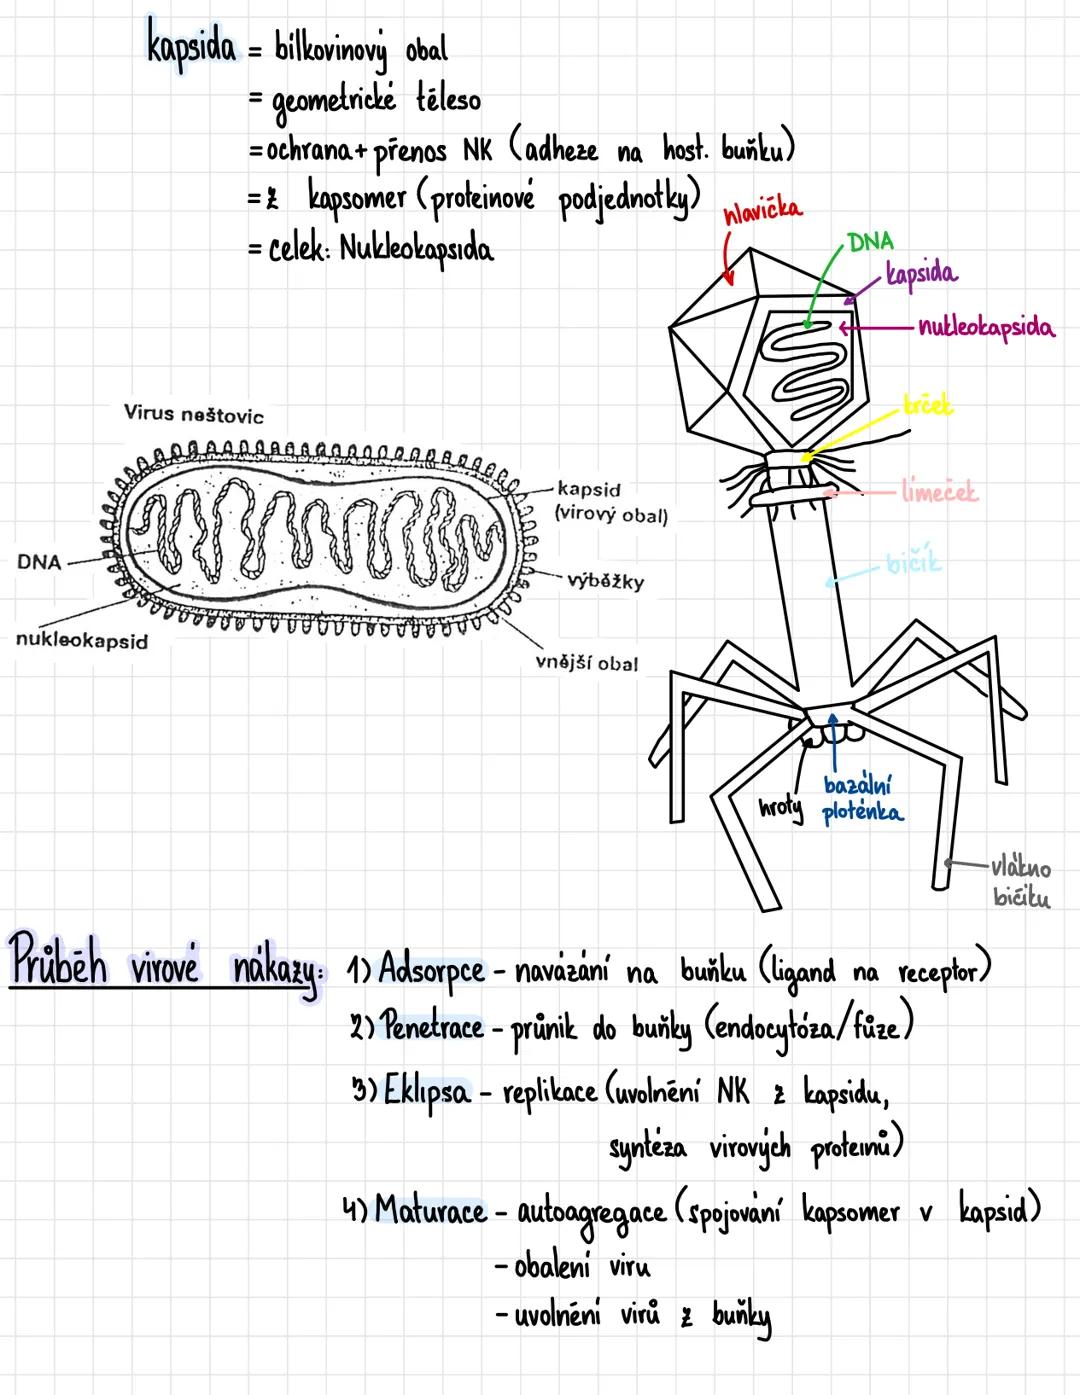 kapsida = bílkovinový obal
= geometrické těleso
= ochrana + přenos NK (adheze na host. buňku)
= z kapsomer (proteinové podjednotky)
= celek: Nukleokapsida
hlavička
DNA
kapsida
nukleokapsida
krček
límeček
bičík
hroty
bazální
ploténka
vlákno
bičíku
Virus neštovic
kapsid
(virový obal)
DNA
výběžky
nukleokapsid
vnější obal
Průběh virové nákazy: 1) Adsorpce - navázání na buňku (ligand na receptor)
2) Penetrace - průnik do buňky (endocytóza/fúze)
3) Eklipsa - replikace (uvolnění NK z kapsidu,
syntéza virových proteinů)
4) Maturace - autoagregace (spojování kapsomer v kapsid)
- obalení viru
- uvolnění virů z buňky